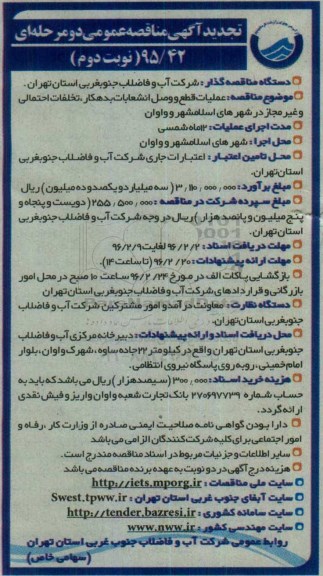 تجدید آگهی مناقصه عمومی دو مرحله‌ای
۹۵/۴۲ (نوبت دوم)
دستگاه مناقصه گذار : شرکت آب و فاضلاب جنوبغربی استان تهران .
موضوع مناقصه : عملیات قطع و وصل انشعابات بدهکار ، تخلفات احتمالی
و غیر مجاز در شهر های اسلامشهر و واوان
مدت اجرای عملیات : ۱۲ماه شمسی
محل اجرا : شهر های اسلامشهر و واوان
محل تامین اعتبار : اعتبارات جاری شرکت آب و فاضلاب جنوبغربی
استان تهران.
مبلغ برآورد : ۳,۱۱۰,۰۰۰,۰۰۰ ( سه میلیارد و یکصدو ده میلیون ) ریال
مبلغ سپرده شرکت در مناقصه : ۲۵۵,۵۰۰,۰۰۰ ( دویست و پنجاه و
پنج میلیون و پانصد هزار ) ریال در وجه شرکت آب و فاضلاب جنوبغربی
استان تهران.
مهلت دریافت اسناد : ۹۶/۲/۲ لغایت ۹۶/۲/۹
مهلت ارائه پیشنهادات : ۹۶/۲/۲۰ (تا ساعت ۱۴).
بازگشایی پاکات الف در مورخ ۹۶/۲/۲۴ ساعت ۱۰ صبح در محل امور
بازرگانی و قراردادهای شرکت آب و فاضلاب جنوبغربی استان تهران
دستگاه نظارت : معاونت درآمد و امور مشترکین شرکت آب و فاضلاب
جنوبغربی استان تهران.
محل دریافت اسناد و ارائه پیشنهادات : دبیرخانه مرکزی آب و فاضلاب
جنوبغربی استان تهران واقع در کیلومتر ۲۲ جاده ساوه ، شهرک واوان ، بلوار
امام خمینی ، روبه روی پاسگاه نیروی انتظامی.
هزینه خرید اسناد : ۳۰۰,۰۰۰ (سیصدهزار ) ریال می باشد که باید به
حساب شماره ۲۷۰۶۹۷۷۳۹ بانک تجارت شعبه واوان واریز و فیش نقدی
ارائه گردد.
دارا بودن گواهی نامه صلاحیت ایمنی صادره از وزارت کار ، رفاه و
امور اجتماعی برای کلیه شرکت کنندگان الزامی می باشد
سایر اطلاعات و جزئیات مربوط در اسناد مناقصه مندرج است.
هزینه درج آگهی در دو نوبت به عهده برنده مناقصه می باشد
سایت ملی مناقصات : http://iets.mporg.ir
سایت آبفای جنوب غربی استان تهران : Swest.tpww.ir
سایت سامانه کشوری : http://tender.bazresi.ir
سایت مهندسی کشور : www.nww.ir
روابط عمومی شرکت آب و فاضلاب جنوب غربی استان تهران
(سهامی خاص)